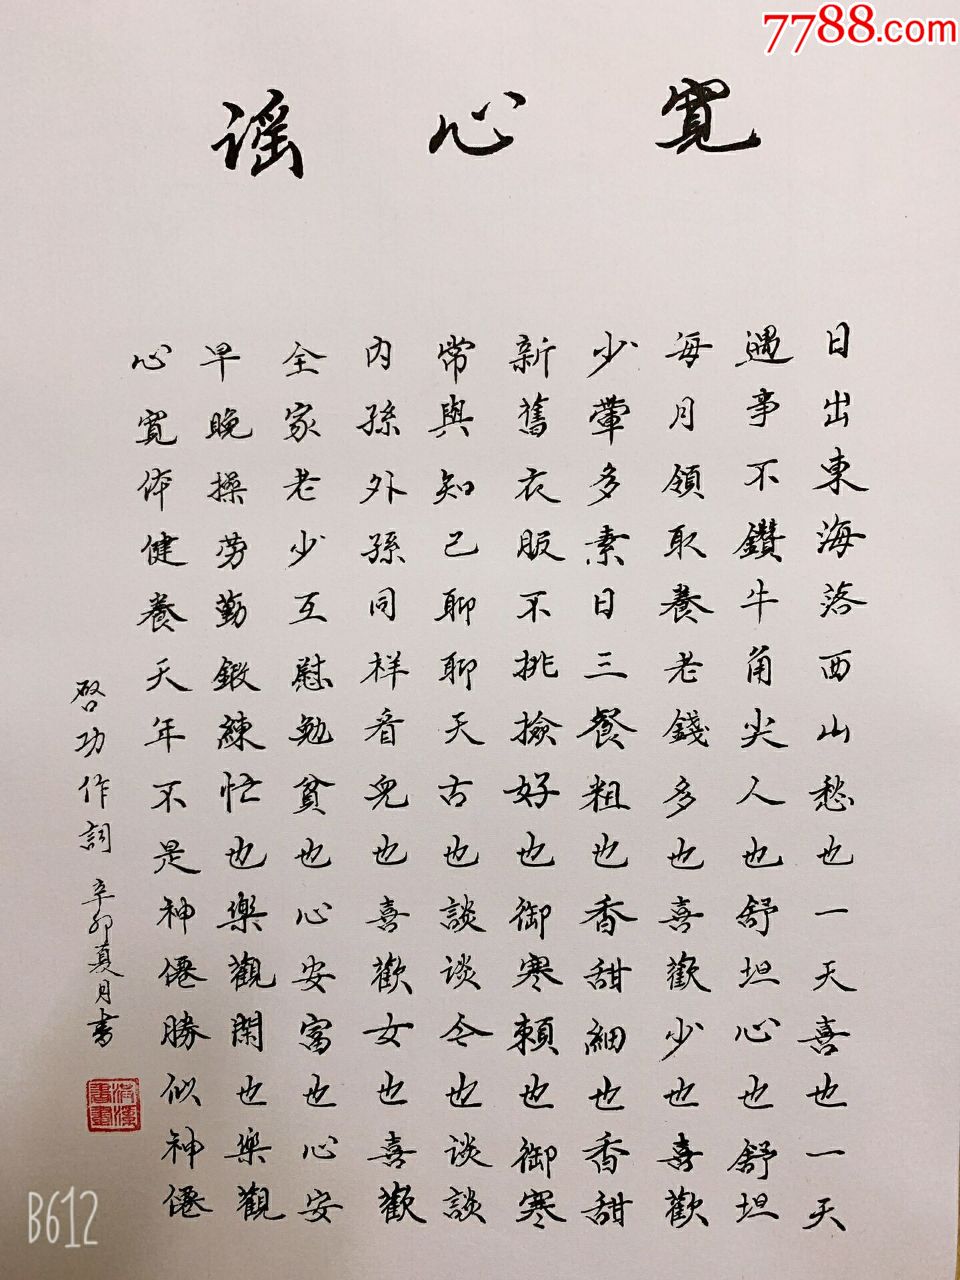 7788.com
寬心謡
日出東海落西山愁也一天喜也一天
遇事不鑽牛角尖人也舒坦心也舒坦
每月領取養老錢多也喜歡少也喜歡
少葷多素日三餐粗也香甜細也香甜
新舊衣服不挑撿好也御寒賴也御寒
常與知己聊聊天古也談談今也談談
内孫外孫同祥看兒也喜歡女也喜歡
全家老少互慰勉貧也心安富也心安
早晚操劳勤鍛練忙也樂觀閑也樂觀
心寬体健養天年不是神僊勝似神僊
啓功作詞 辛卯夏月書
B612